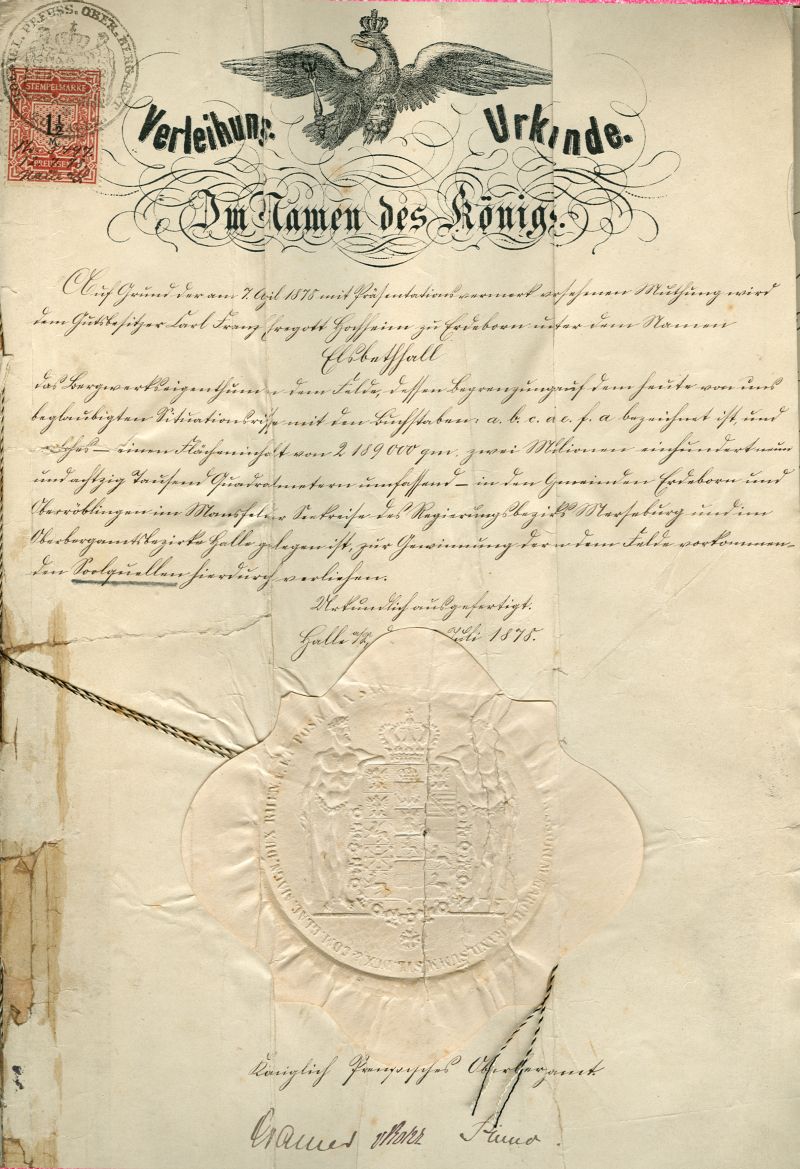 KOENIGL. PREUSS. OBER-BERG-AMT
STEMPELMARKE
1½
M
PREUSSEN
Verleihungs Urkunde.
Im Namen des Königs.
Auf Grund der am 7. April 1875 mit Präsentationsvermerk versehenen Muthung wird
dem Gutsbesitzer Carl Franz Ehregott Hochheim zu Erdeborn unter dem Namen
Elsbethhall
das Bergwerkseigenthum in dem Felde, dessen Begrenzung auf dem heute von uns
beglaubigten Situationsrisse mit den Buchstaben: a. b. c. d. e. f. a bezeichnet ist, und
welches – einen Flächeninhalt von 2 189 000 qm. zwei Millionen einhundert neun
und achtzig Tausend Quadratmetern umfassend – in den Gemeinden Erdeborn und
Oberröblingen im Mansfelder Seekreise des Regierungsbezirks Merseburg und im
Oberbergamtsbezirke Halle gelegen ist, zur Gewinnung der in dem Felde vorkommen-
den Soolquellen hierdurch verliehen.
Urkundlich ausgefertigt.
Halle a/S, Juli 1875.
Königlich Preussisches Oberbergamt.
Cramer